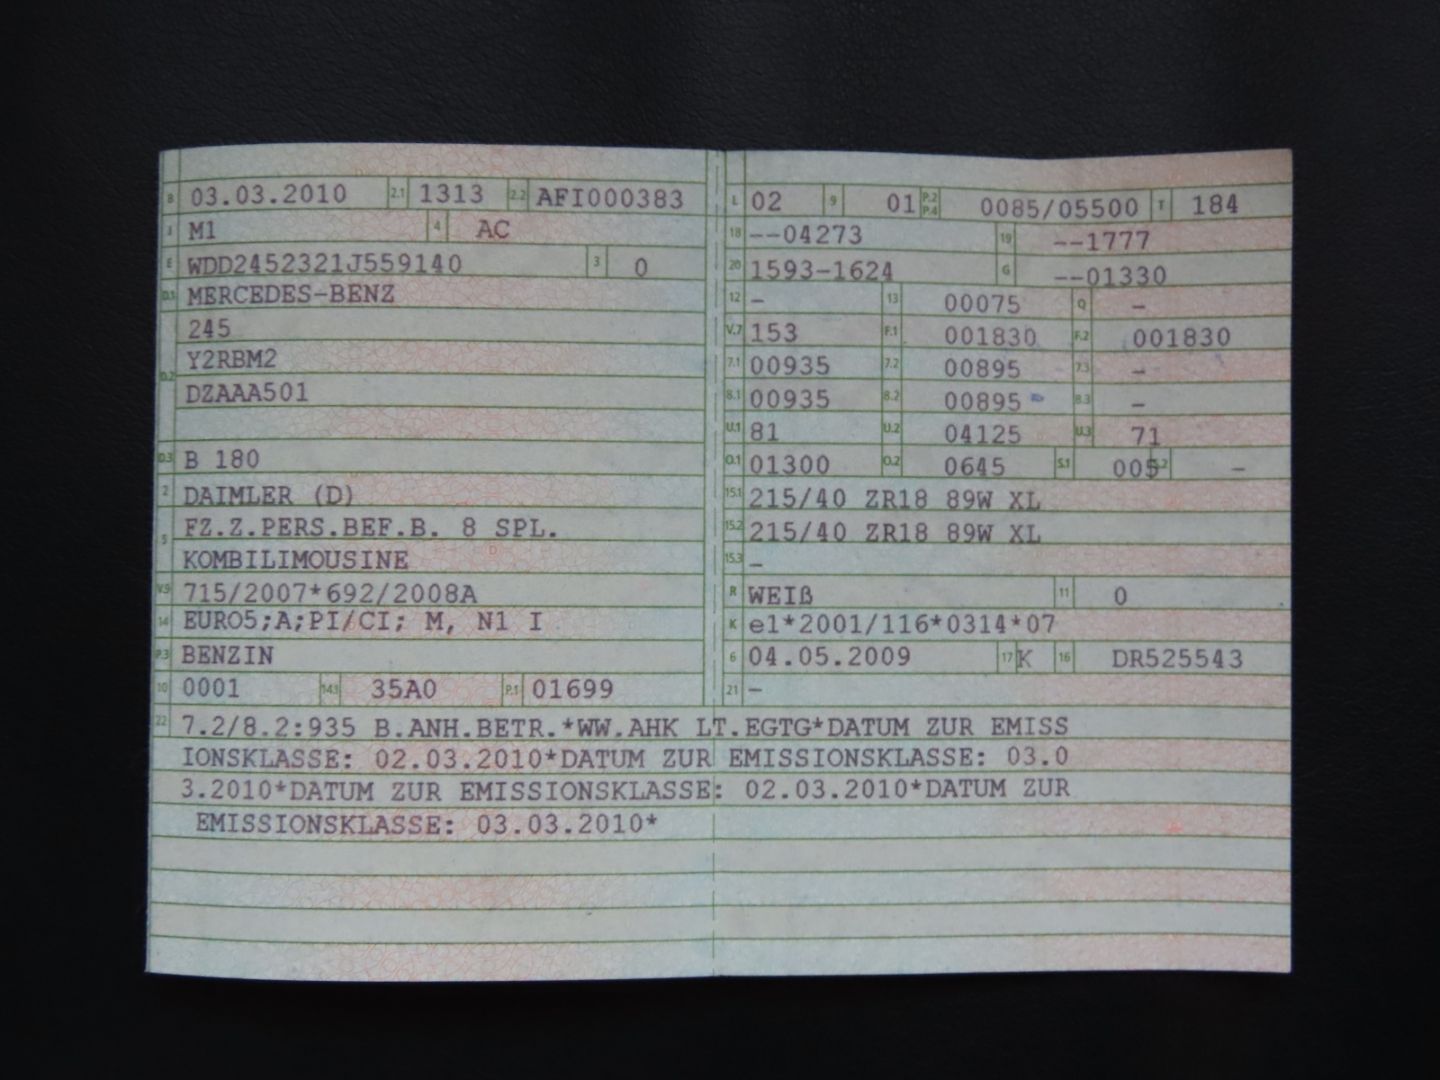 B 03.03.2010 2.1 1313 2.2 AFI000383
J M1 4 AC
E WDD2452321J559140 3 0
D.1 MERCEDES-BENZ
245
D.2 Y2RBM2
DZAAA501
D.3 B 180
2 DAIMLER (D)
5 FZ.Z.PERS.BEF.B. 8 SPL.
KOMBILIMOUSINE
V.9 715/2007*692/2008A
14 EURO5;A;PI/CI; M, N1 I
P.3 BENZIN
10 0001 14.1 35A0 P.1 01699
L 02 9 01 P.2 P.4 0085/05500 T 184
18 --04273 19 --1777
20 1593-1624 G --01330
12 - 13 00075 Q -
V.7 153 F.1 001830 F.2 001830
7.1 00935 7.2 00895 7.3 -
8.1 00935 8.2 00895 8.3 -
U.1 81 U.2 04125 U.3 71
O.1 01300 O.2 0645 S.1 005 S.2 -
15.1 215/40 ZR18 89W XL
15.2 215/40 ZR18 89W XL
15.3 -
R WEIß 11 0
K e1*2001/116*0314*07
6 04.05.2009 17 K 16 DR525543
21 -
22 7.2/8.2:935 B.ANH.BETR.*WW.AHK LT.EGTG*DATUM ZUR EMISS
IONSKLASSE: 02.03.2010*DATUM ZUR EMISSIONSKLASSE: 03.0
3.2010*DATUM ZUR EMISSIONSKLASSE: 02.03.2010*DATUM ZUR
EMISSIONSKLASSE: 03.03.2010*